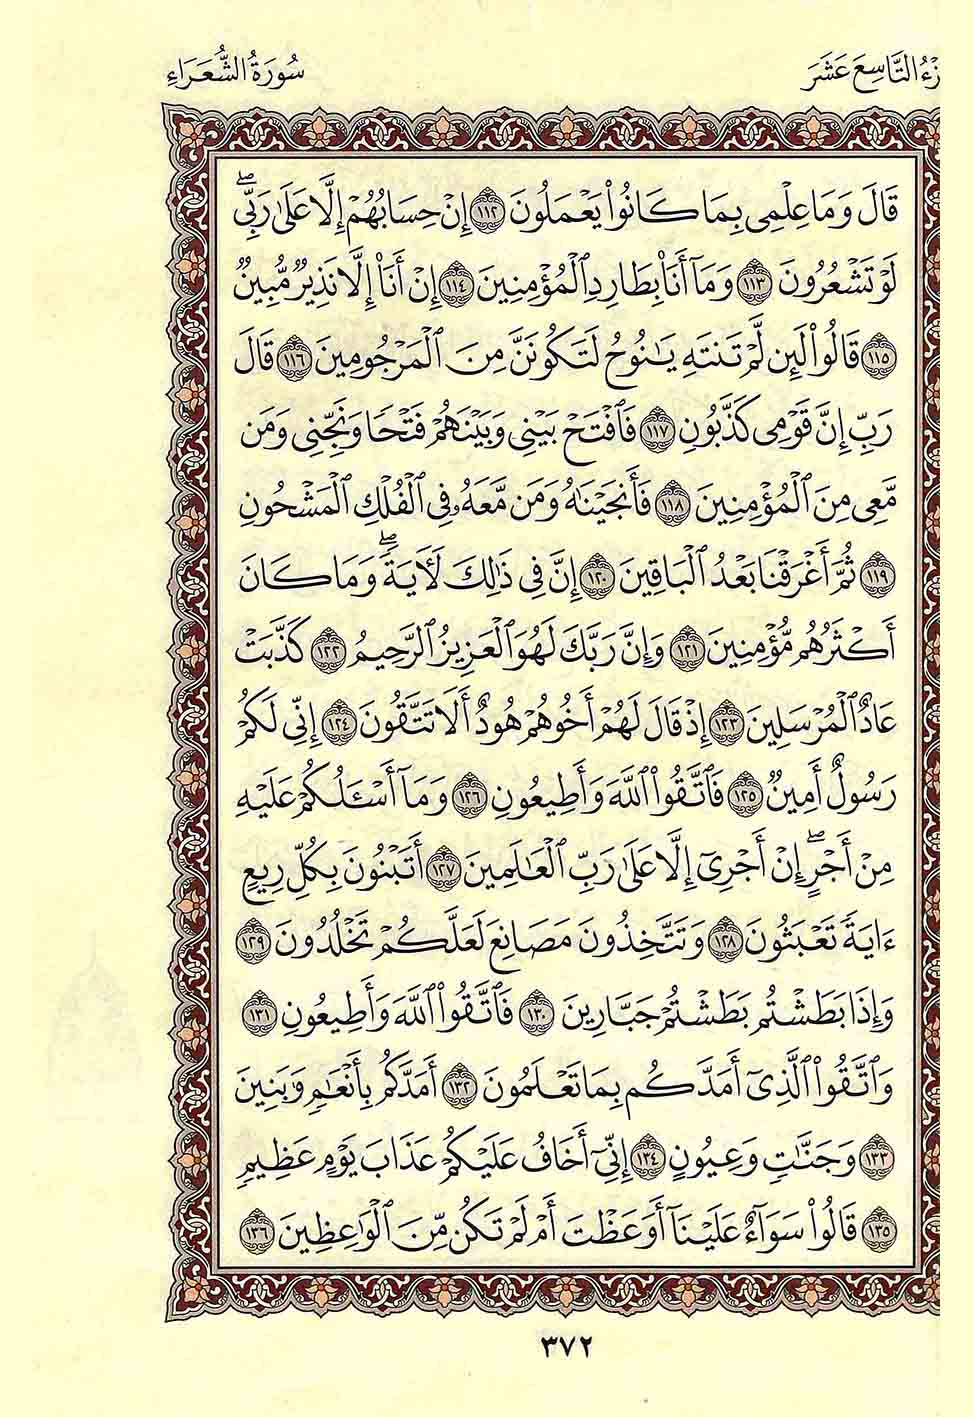 زْءُ التَّاسِعَ عَشَرَ
سُورَةُ الشُّعَرَاءِ
قَالَ وَمَا عِلْمِى بِمَا كَانُوا۟ يَعْمَلُونَ ١١٢ إِنْ حِسَابُهُمْ إِلَّا عَلَىٰ رَبِّى ۖ
لَوْ تَشْعُرُونَ ١١٣ وَمَآ أَنَا۠ بِطَارِدِ ٱلْمُؤْمِنِينَ ١١٤ إِنْ أَنَا۠ إِلَّا نَذِيرٌ مُّبِينٌ
١١٥ قَالُوا۟ لَئِن لَّمْ تَنتَهِ يَٰنُوحُ لَتَكُونَنَّ مِنَ ٱلْمَرْجُومِينَ ١١٦ قَالَ
رَبِّ إِنَّ قَوْمِى كَذَّبُونِ ١١٧ فَٱفْتَحْ بَيْنِى وَبَيْنَهُمْ فَتْحًا وَنَجِّنِى وَمَن
مَّعِىَ مِنَ ٱلْمُؤْمِنِينَ ١١٨ فَأَنجَيْنَٰهُ وَمَن مَّعَهُۥ فِى ٱلْفُلْكِ ٱلْمَشْحُونِ
١١٩ ثُمَّ أَغْرَقْنَا بَعْدُ ٱلْبَاقِينَ ١٢٠ إِنَّ فِى ذَٰلِكَ لَءَايَةً ۖ وَمَا كَانَ
أَكْثَرُهُم مُّؤْمِنِينَ ١٢١ وَإِنَّ رَبَّكَ لَهُوَ ٱلْعَزِيزُ ٱلرَّحِيمُ ١٢٢ كَذَّبَتْ
عَادٌ ٱلْمُرْسَلِينَ ١٢٣ إِذْ قَالَ لَهُمْ أَخُوهُمْ هُودٌ أَلَا تَتَّقُونَ ١٢٤ إِنِّى لَكُمْ
رَسُولٌ أَمِينٌ ١٢٥ فَٱتَّقُوا۟ ٱللَّهَ وَأَطِيعُونِ ١٢٦ وَمَآ أَسْـَٔلُكُمْ عَلَيْهِ
مِنْ أَجْرٍ ۖ إِنْ أَجْرِىَ إِلَّا عَلَىٰ رَبِّ ٱلْعَٰلَمِينَ ١٢٧ أَتَبْنُونَ بِكُلِّ رِيعٍ
ءَايَةً تَعْبَثُونَ ١٢٨ وَتَتَّخِذُونَ مَصَانِعَ لَعَلَّكُمْ تَخْلُدُونَ ١٢٩
وَإِذَا بَطَشْتُم بَطَشْتُمْ جَبَّارِينَ ١٣٠ فَٱتَّقُوا۟ ٱللَّهَ وَأَطِيعُونِ ١٣١
وَٱتَّقُوا۟ ٱلَّذِىٓ أَمَدَّكُم بِمَا تَعْلَمُونَ ١٣٢ أَمَدَّكُم بِأَنْعَٰمٍ وَبَنِينَ
١٣٣ وَجَنَّٰتٍ وَعُيُونٍ ١٣٤ إِنِّىٓ أَخَافُ عَلَيْكُمْ عَذَابَ يَوْمٍ عَظِيمٍ
١٣٥ قَالُوا۟ سَوَآءٌ عَلَيْنَآ أَوَعَظْتَ أَمْ لَمْ تَكُن مِّنَ ٱلْوَٰعِظِينَ ١٣٦
٣٧٢